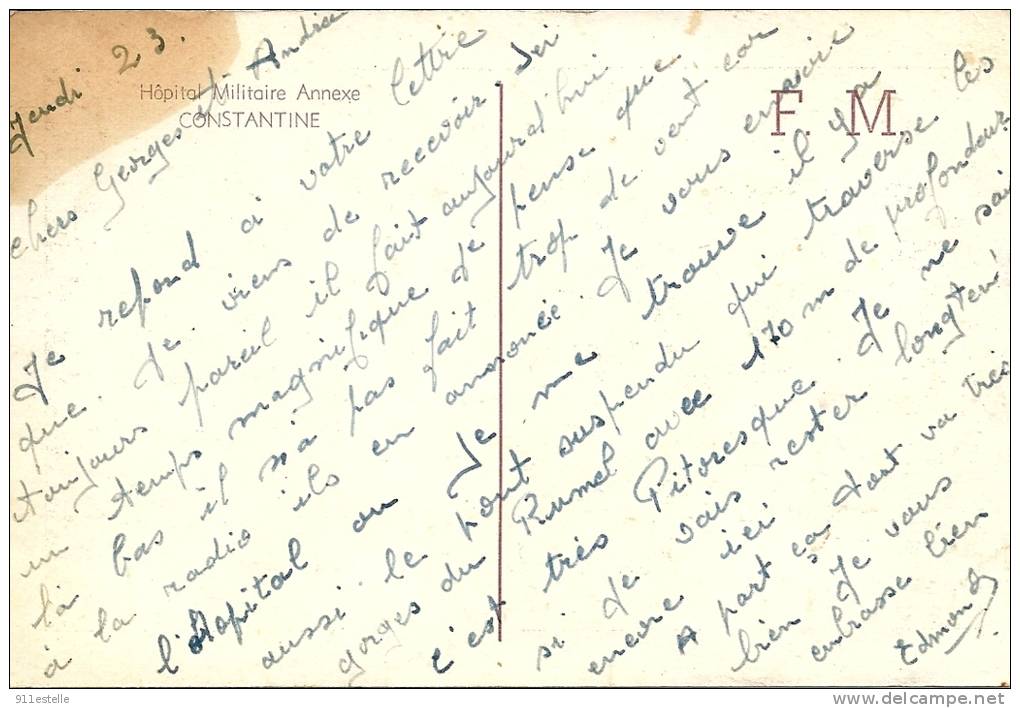 Jeudi 23.
Hôpital Militaire Annexe
CONSTANTINE
F. M.
chers Georges et Andrée
Je repond a votre lettre
que. Je viens de recevoir. Ici
toujours pareil il fait aujourd'hui
un temps magnifique Je pense que
là bas il n'a pas fait trop de vent car
à la radio ils en annoncé. Je vous envoie
l'Hopital ou Je me trouve il y a
aussi le pont suspendu qui traverse les
gorges du Rumel avec 170 m de profondeur
c'est très Pitoresque. Je ne sai
si Je vais rester longtem
encore ici
A part ça tout va tres
bien Je vous
embrasse bien
Edmond
911estelle
delcampe.net